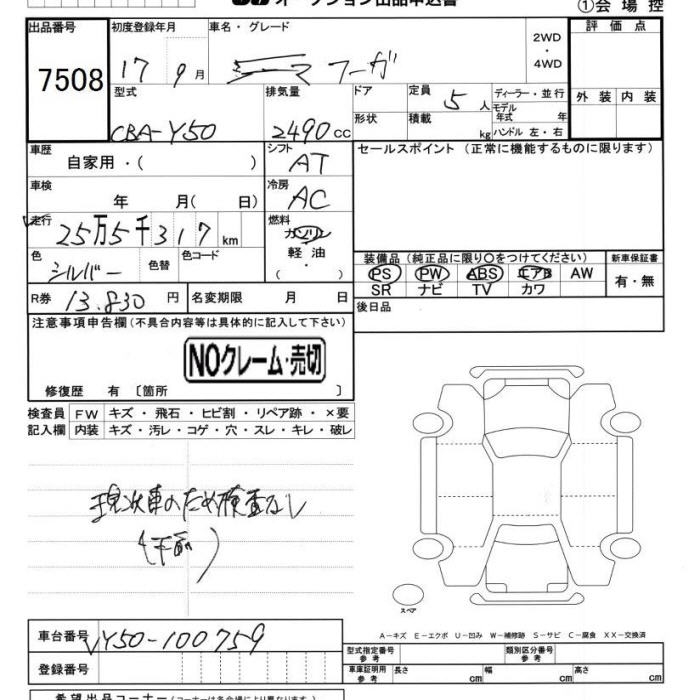 オークション出品申込書
①会場控
出品番号 初度登録年月 車名・グレード 2WD・4WD 評価点
7508 17 9月 フーガ
型式 排気量 ドア 定員 5人 ディーラー・並行 外装 内装
CBA-Y50 2490cc 形状 積載 kg モデル年式 年 ハンドル 左・右
車歴 自家用・( ) シフト AT セールスポイント (正常に機能するものに限ります)
車検 年 月( 日) 冷房 AC
走行 25万5千317km 燃料 ガソリン
軽油
( ・ )
色 シルバー 色替 色コード 装備品(純正品に限り○をつけてください) 新車保証書
PS PW ABS エアB AW 有・無
SR ナビ TV カワ
R券 13.830円 名変期限 月 日 後日品
注意事項申告欄(不具合内容等は具体的に記入して下さい)
NOクレーム・売切
修復歴 有 〔箇所 〕
検査員 FW キズ・飛石・ヒビ割・リペア跡・×要
記入欄 内装 キズ・汚レ・コゲ・穴・スレ・キレ・破レ
現状車のため検査なし
(下面)
スペア
A-キズ E-エクボ U-凹み W-補修跡 S-サビ C-腐食 XX-交換済
車台番号 Y50-100759
型式指定番号 参考 類別区分番号 参考
登録番号 車庫証明用 参考 長さ cm 幅 cm 高さ cm
希望出品コーナー(コーナー名は各会場により異なります)